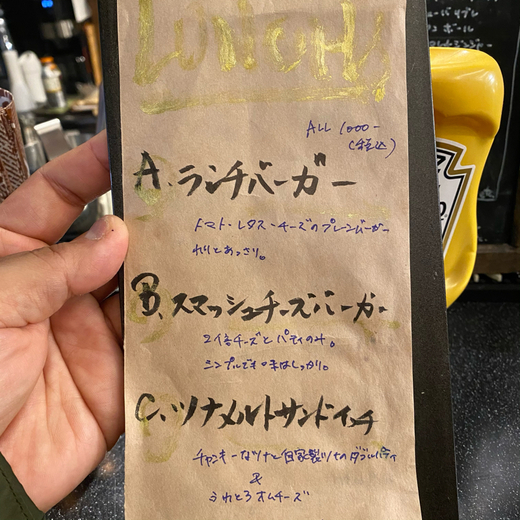 LUNCH!
ALL 1000-
(税込)
A. ランチバーガー
トマト・レタス・チーズのプレーンバーガー
わりとあっさり。
B. スマッシュチーズバーガー
2倍チーズとパティのみ。
シンプルでも味はしっかり。
C. ツナメルトサンドイッチ
チャンキーなツナと自家製ツナのダブルパティ
&
うれとろオムチーズ